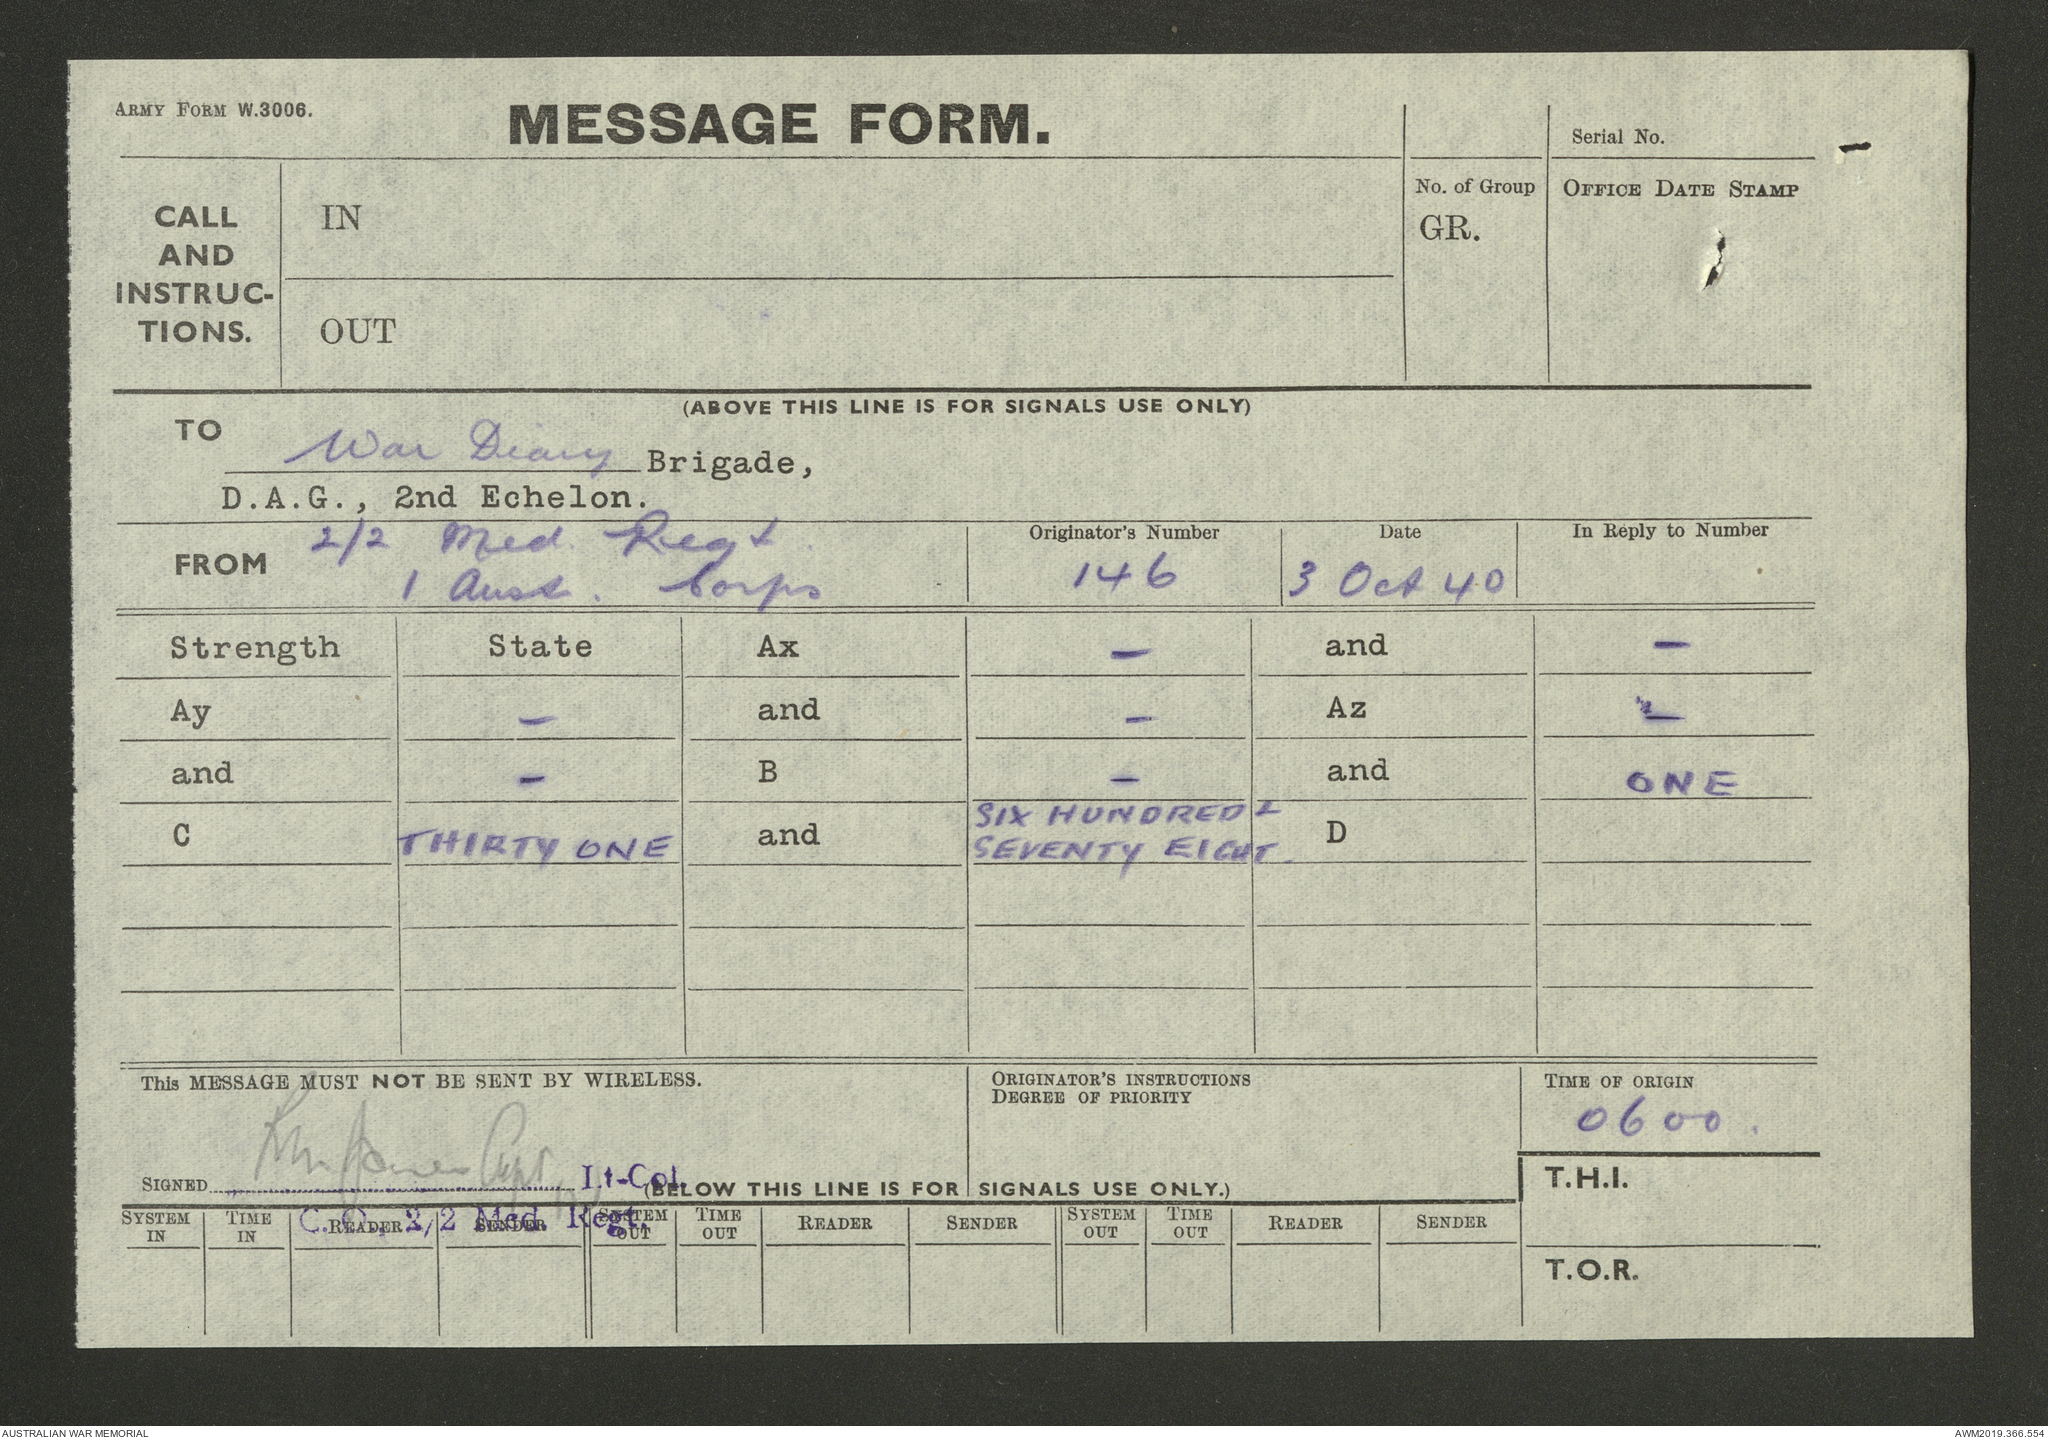 ARMY FORM W.3006.
MESSAGE FORM.
Serial No.
CALL AND INSTRUC-TIONS.
IN
OUT
No. of Group
GR.
OFFICE DATE STAMP
(ABOVE THIS LINE IS FOR SIGNALS USE ONLY)
TO
War Diary Brigade,
D.A.G., 2nd Echelon.
FROM 2/2 Med. Regt.
1 Aust. Corps
Originator's Number
146
Date
3 Oct 40
In Reply to Number
Strength State Ax - and -
Ay - and - Az -
and - B - and ONE
C THIRTY ONE and SIX HUNDRED & SEVENTY EIGHT. D
This MESSAGE MUST NOT BE SENT BY WIRELESS.
ORIGINATOR'S INSTRUCTIONS
DEGREE OF PRIORITY
TIME OF ORIGIN
0600.
SIGNED Capt Lt-Col.
C.O., 2/2 Med. Regt.
(BELOW THIS LINE IS FOR SIGNALS USE ONLY.)
T.H.I.
SYSTEM IN TIME IN READER SENDER SYSTEM OUT TIME OUT READER SENDER SYSTEM OUT TIME OUT READER SENDER
T.O.R.
AUSTRALIAN WAR MEMORIAL
AWM2019.366.554